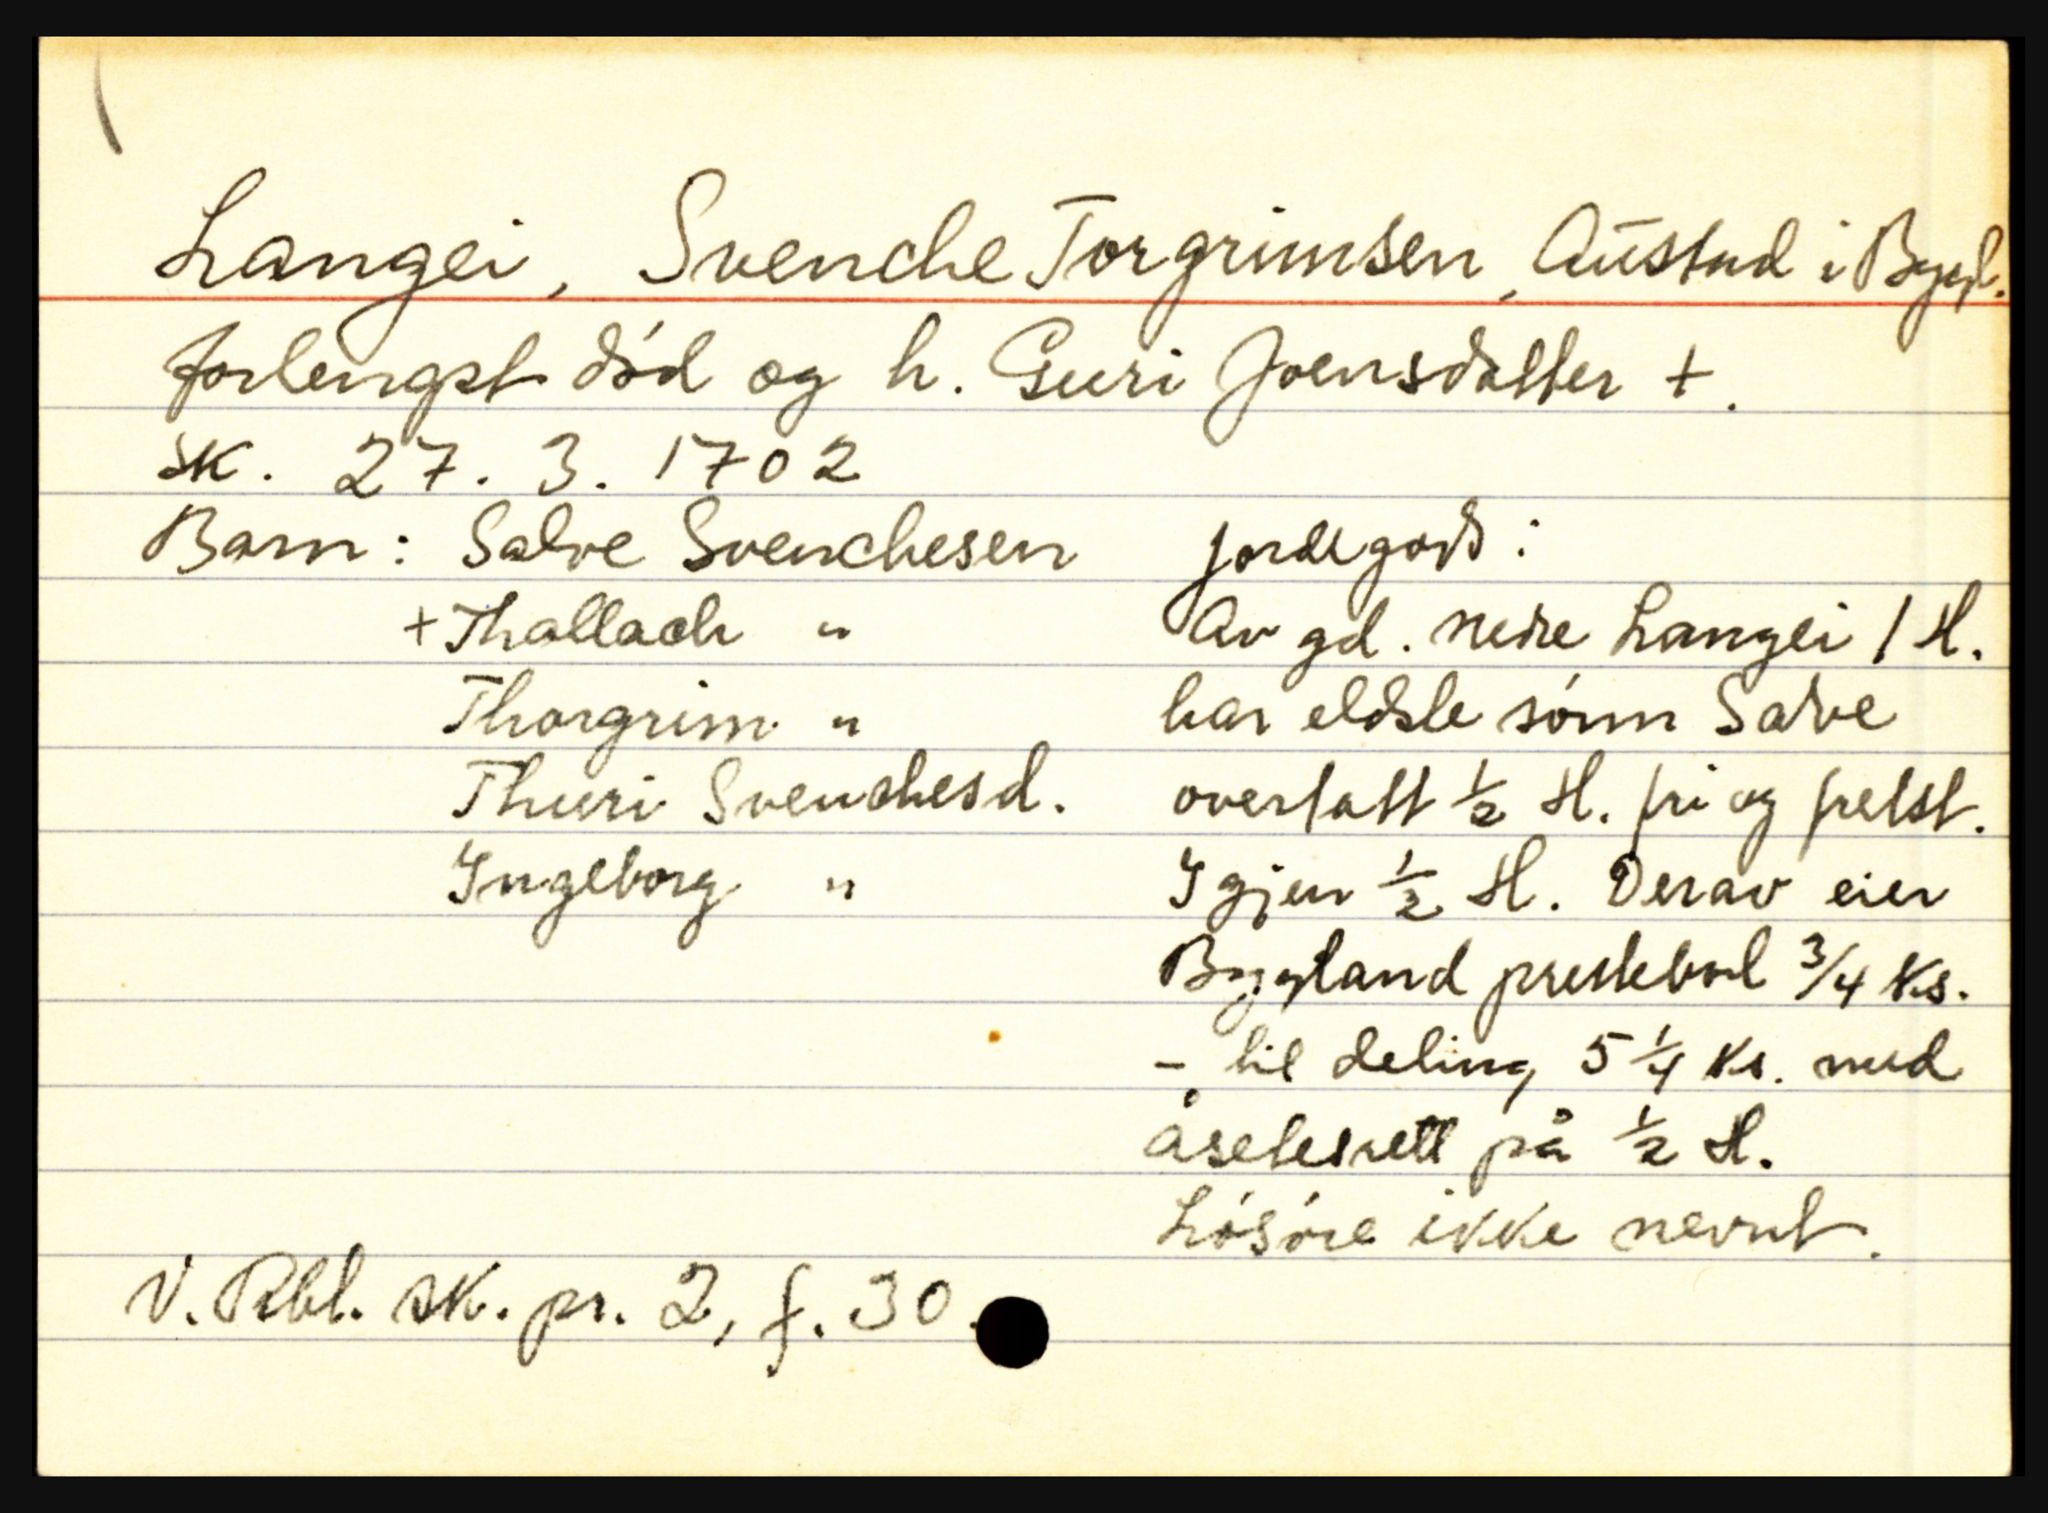 Langei, Svenche Torgrimsen, Austad i Bygl.
forlengst død og h. Guri Joensdatter +.
sk. 27. 3. 1702
Barn: Salve Svenchesen
+ Thallach "
Thorgrim "
Thuri Svenchesd.
Ingeborg "
jordegods:
Av gd. nedre Langei 1 H.
har eldste sønn Salve
overtatt ½ H. fri og frelst.
Igjen ½ H. Derav eier
Bygland prestebol 3/4 ks.
- til deling 5 ¼ ks. med
åsetesrett på ½ H.
Løsøre ikke nevnt.
V. Rbl. sk. pr. 2, f. 30.